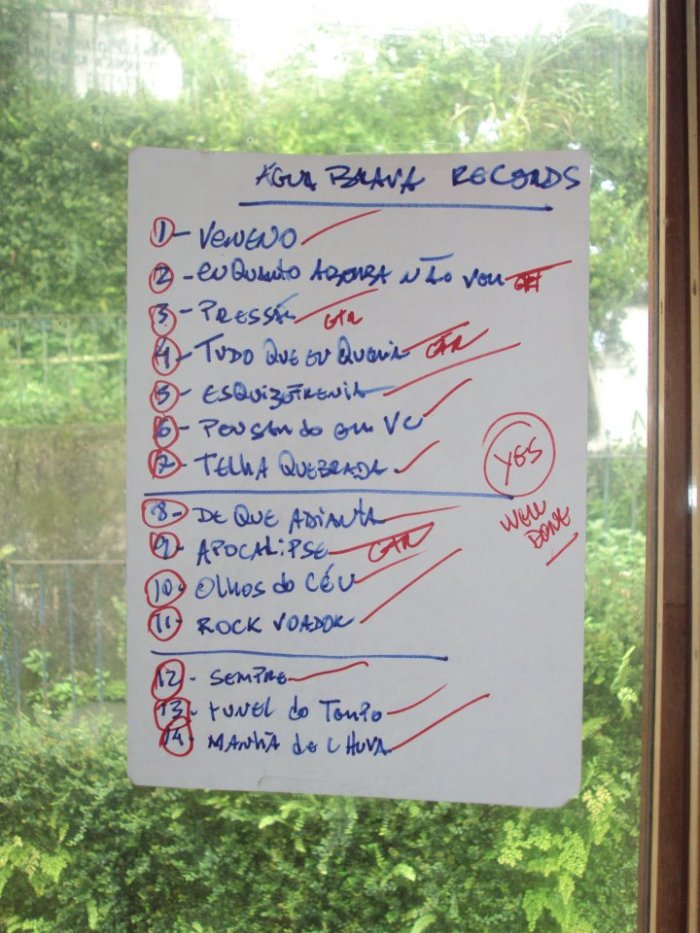 ÁGUA BRAVA RECORDS
1 - VENENO
2 - ENQUANTO A BOMBA NÃO VEM
3 - PRESSÃO GTR
4 - TUDO QUE EU QUERIA GTR
5 - ESQUIZOFRENIA
6 - PENSANDO EM VC
7 - TELHA QUEBRADA
8 - DE QUE ADIANTA
9 - APOCALIPSE GTR
10 - OLHOS DO CÉU
11 - ROCK VOADOR
YES
WELL
DONE
12 - SEMPRE
13 - TUNEL DO TEMPO
14 - MANHÃ DE CHUVA